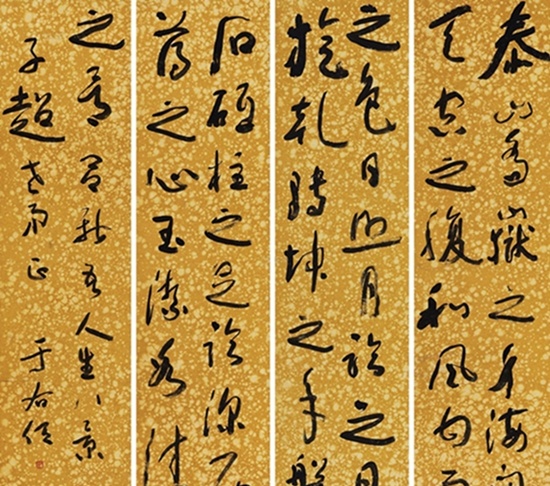 泰山喬嶽之身海
天空之腹和風甘雨
之色日照月臨之目
旋乾轉坤之手磐
石砥柱之足臨深履
薄之心玉潔冰清
之骨呂新吾人生八景
子超老弟正 于右任